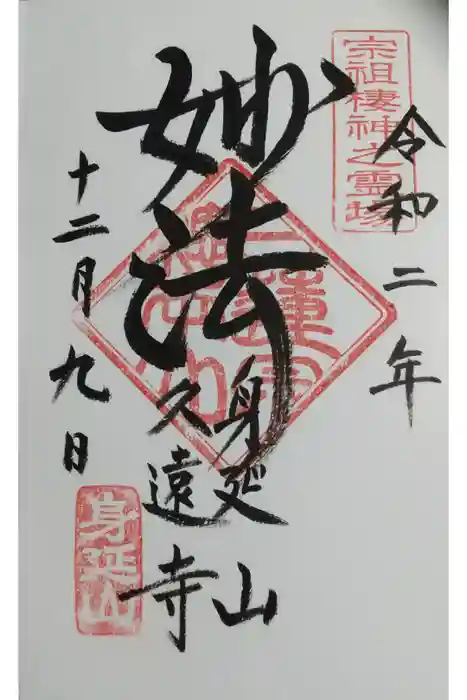 宗祖棲神之霊場
令和二年
妙法
身延山
久遠寺
十二月九日
身延山